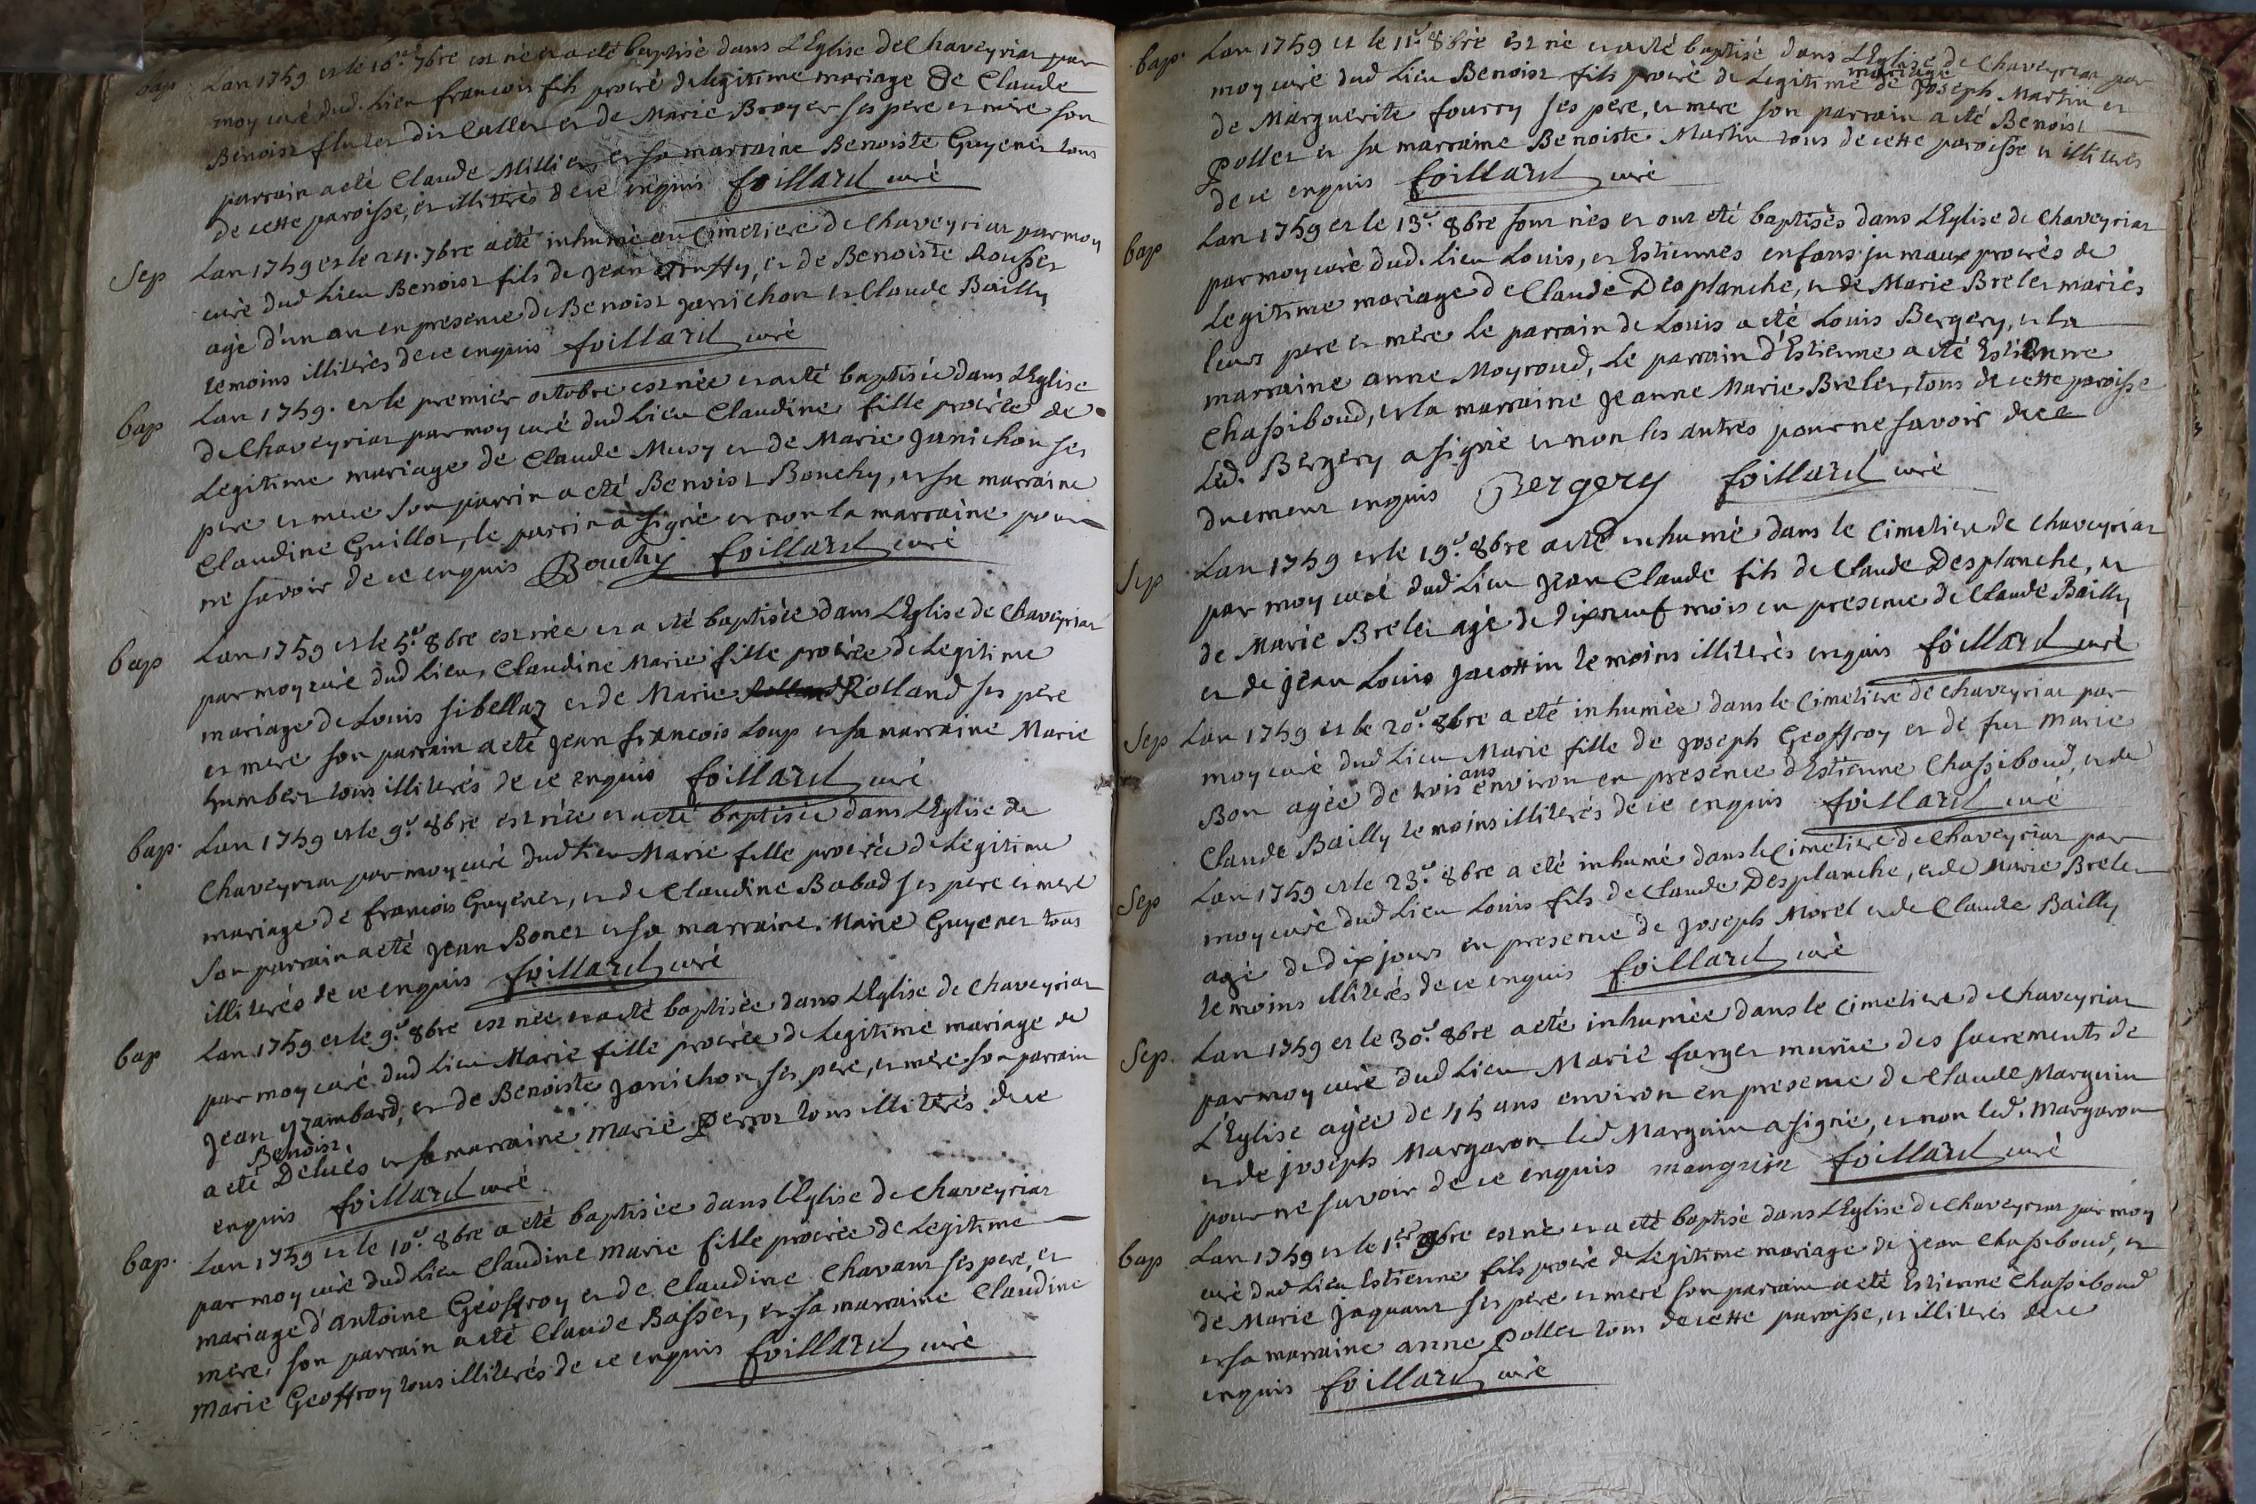 bap. Lan 1759 et le 16.e 7bre est né et a eté baptisé dans L'Eglise de Chaveyriat par
moy curé dud. Lieu francois fils procrée de legitime mariage De Claude
Benoist fluter dit Caller et de Marie Broyer ses pere et mere son
parrain a eté Claude Millier et sa marraine Benoiste Guyenet tous
de cette paroisse, et illitérés de ce enquis foillard curé
Sep Lan 1759 et le 24. 7bre a eté inhumé au Cimetiere de Chaveyriat par moy
curé dud Lieu Benoist fils de Jean et de Benoiste Rousset
agé d'un an en presence de Benoist Janichon et Claude Bailly
temoins illiterés de ce enquis foillard curé
bap Lan 1759. et le premier octobre est née et a eté baptisée dans L'Eglise
de Chaveyriat par moy curé dud Lieu Claudine fille procrée de
Legitime mariage de Claude Muzy et de Marie Janichon ses
pere et mere son parrin a eté Benoist Bouchy, et sa marraine
Claudine Guillot, le parrin a signé et non la marraine pour
ne savoir de ce enquis Bouchy foillard curé
bap Lan 1759 et le 5.e 8bre est née et a eté baptisée dans L'Eglise de Chaveyriat
par moy curé dud Lieu, Claudine Marie fille procrée de Legitime
mariage de Louis sibellaz et de Marie Rolland ses pere
et mere son parrain a eté Jean francois Loup et sa marraine Marie
humbert tous illiterés de ce enquis foillard curé
bap. Lan 1759 et le 9.e 8bre est née et a eté baptisée dans L'Eglise de
Chaveyriat par moy curé dud Lieu Marie fille procrée de Legitime
mariage de francois Guyenet, et de Claudine Babad ses pere et mere
son parrain a eté Jean Bonet et sa marraine Marie Guyenet tous
illiterés de ce enquis foillard curé
bap Lan 1759 et le 9.e 8bre est née et a eté baptisée dans L'Eglise de Chaveyriat
par moy curé dud Lieu Marie fille procrée de Legitime mariage de
Jean yzambard, et de Benoiste Janichon ses pere, et mere son parrain
Benoist
a eté Deluës et sa marraine Marie Perrot tous illiterés de ce
enquis foillard curé
bap. Lan 1759 et le 10.e 8bre a eté baptisée dans L'Eglise de Chaveyriat
par moy curé dud Lieu Claudine Marie fille procrée de Legitime
mariage d'antoine Geoffroy et de Claudine Chavant ses pere, et
mere, son parrain a eté Claude Basset, et sa marraine Claudine
Marie Geoffroy tous illiterés de ce enquis foillard curé
bap. Lan 1759 et le 11.e 8bre est né et a eté baptisé dans L'Eglise de Chaveyriat par
moy curé dud Lieu Benoist fils procré de Legitime mariage de Joseph Martin et
de Marguerite fourry ses pere, et mere son parrain a eté Benoist
Pollet et sa marraine Benoiste Martin tous de cette paroisse et illiterés
de ce enquis foillard curé
bap Lan 1759 et le 13.e 8bre sont nés et ont eté baptisés dans L'Eglise de Chaveyriat
par moy curé dud. Lieu Louis, et Estiennes enfans jumaux procrés de
Legitime mariage de Claude Desplanche, et de Marie Brelet mariés
leurs pere et mere Le parrain de Louis a eté Louis Bergery, et la
marraine anne Moyroud, Le parrain d'Estienne a eté Estienne
Chassiboud, et la marraine Jeanne Marie Brelet, tous de cette paroisse
Led. Bergery a signé et non les autres pour ne savoir de ce
duement enquis Bergery foillard curé
Sep Lan 1759 et le 19.e 8bre a eté inhumé dans le Cimetiere de Chaveyriat
par moy curé dud Lieu Jean Claude fils de Claude Desplanche, et
de Marie Brelet agé de dixneuf mois en presence de Claude Bailly
et de Jean Louis Jacottin temoins illiterés enquis foillard curé
Sep Lan 1759 et le 20.e 8bre a eté inhumée dans le Cimetiere de Chaveyriat par
moy curé dud Lieu Marie fille de Joseph Geoffroy et de fut Marie
Bon agée de trois ans environ en presence d'Estienne Chassiboud, et de
Claude Bailly temoins illiterés de ce enquis foillard curé
Sep Lan 1759 et le 23.e 8bre a eté inhumé dans le Cimetiere de Chaveyriat par
moy curé dud Lieu Louis fils de Claude Desplanche, et de Marie Brelet
agé de dix jours en presence de Joseph Morel et de Claude Bailly
temoins illiterés de ce enquis foillard curé
Sep. Lan 1759 et le 30.e 8bre a eté inhumée dans le Cimetiere de Chaveyriat
par moy curé dud Lieu Marie farget munie des sacrements de
L'Eglise agée de 45 ans environ en presence de Claude Marguin
et de joseph Margaron led Marguin a signé, et non led. Margaron
pour ne savoir de ce enquis manguin foillard curé
bap Lan 1759 et le 1.er 9bre est né et a eté baptisé dans L'Eglise de Chaveyriat par moy
curé dud Lieu Estienne fils procré de Legitime mariage de Jean Chassiboud, et
de Marie Jaquant ses pere et mere son parrain a eté Estienne Chassiboud
et sa marraine anne Pollet tous de cette paroisse, et illiterés de ce
enquis foillard curé